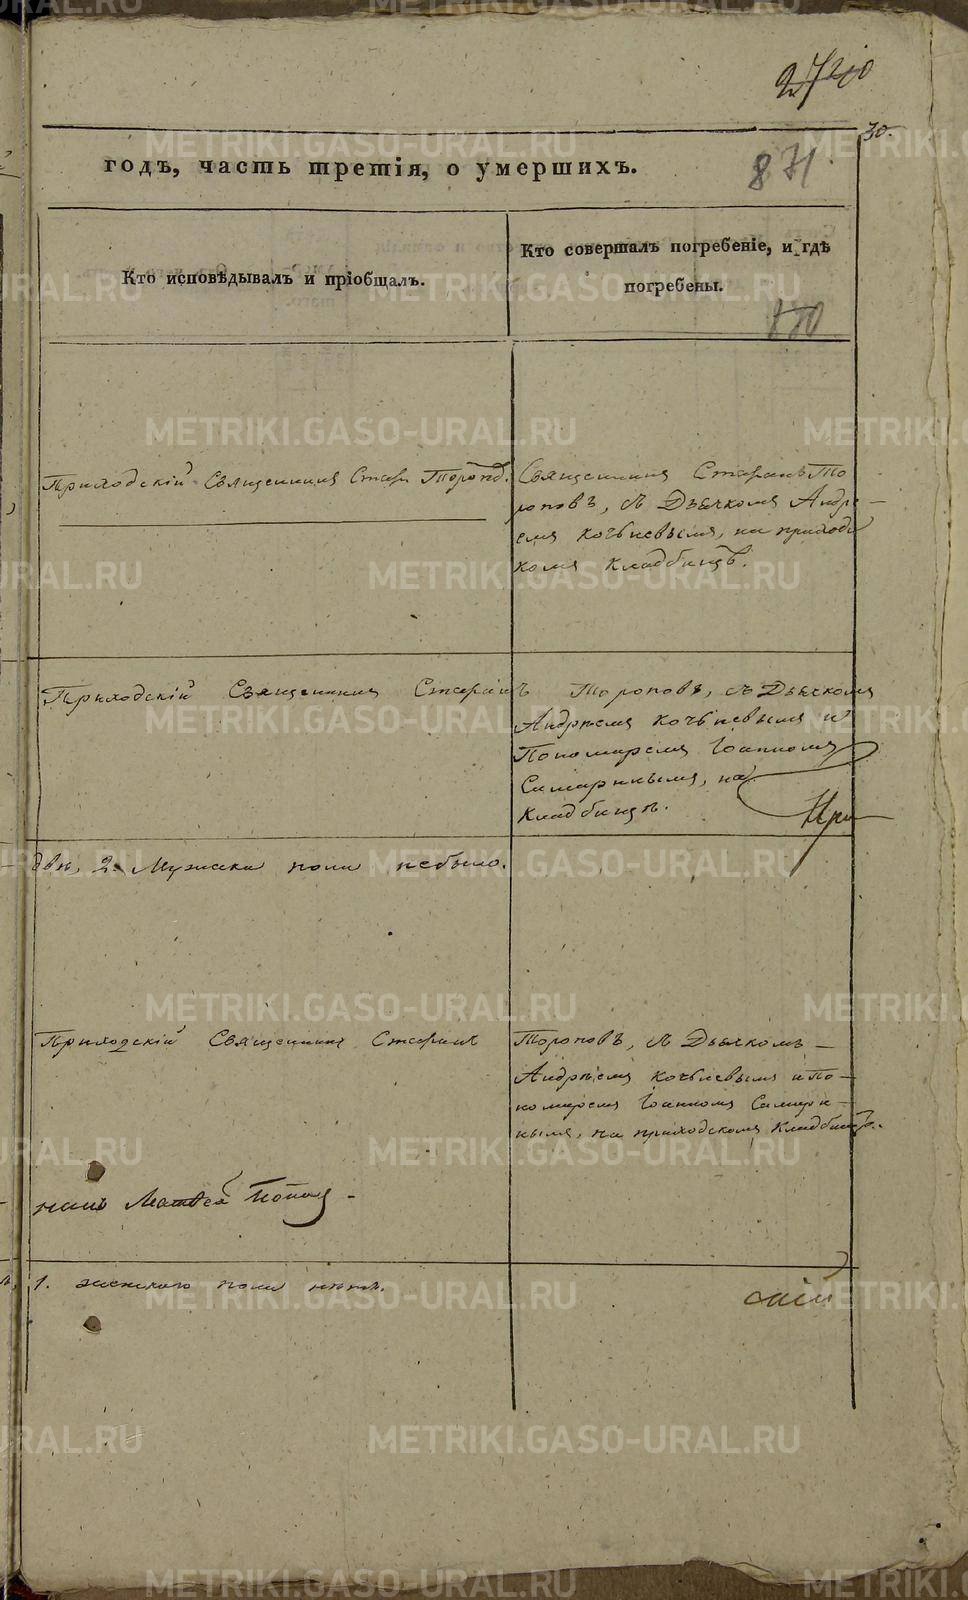 30.
годъ, часть третія, о умершихъ.
871
Кто исповѣдывалъ и пріобщалъ.
Кто совершалъ погребеніе, и гдѣ
погребены.
870
Приходскій Священникъ Стефанъ Тороповъ.
Священникъ Стефанъ То
роповъ, съ Дьячкомъ Андре-
емъ на приходс
комъ кладбищѣ.
Приходскій Священникъ Стефанъ Тороповъ, съ Дьячкомъ
Андреемъ и
Пономаремъ Іоанномъ
Самаринымъ, на
Кладбищѣ.
При
двѣ, 2. Мужска пола небыло.
Приходскій Священникъ Стефанъ Тороповъ, съ Дьячкомъ
Андреемъ и По-
номаремъ Іоанномъ Самари-
нымъ, на приходскомъ Кладбищѣ.
никъ Матѳей Поповъ
1. женскаго пола нѣтъ.
скій
METRIKI.GASO-URAL.RU